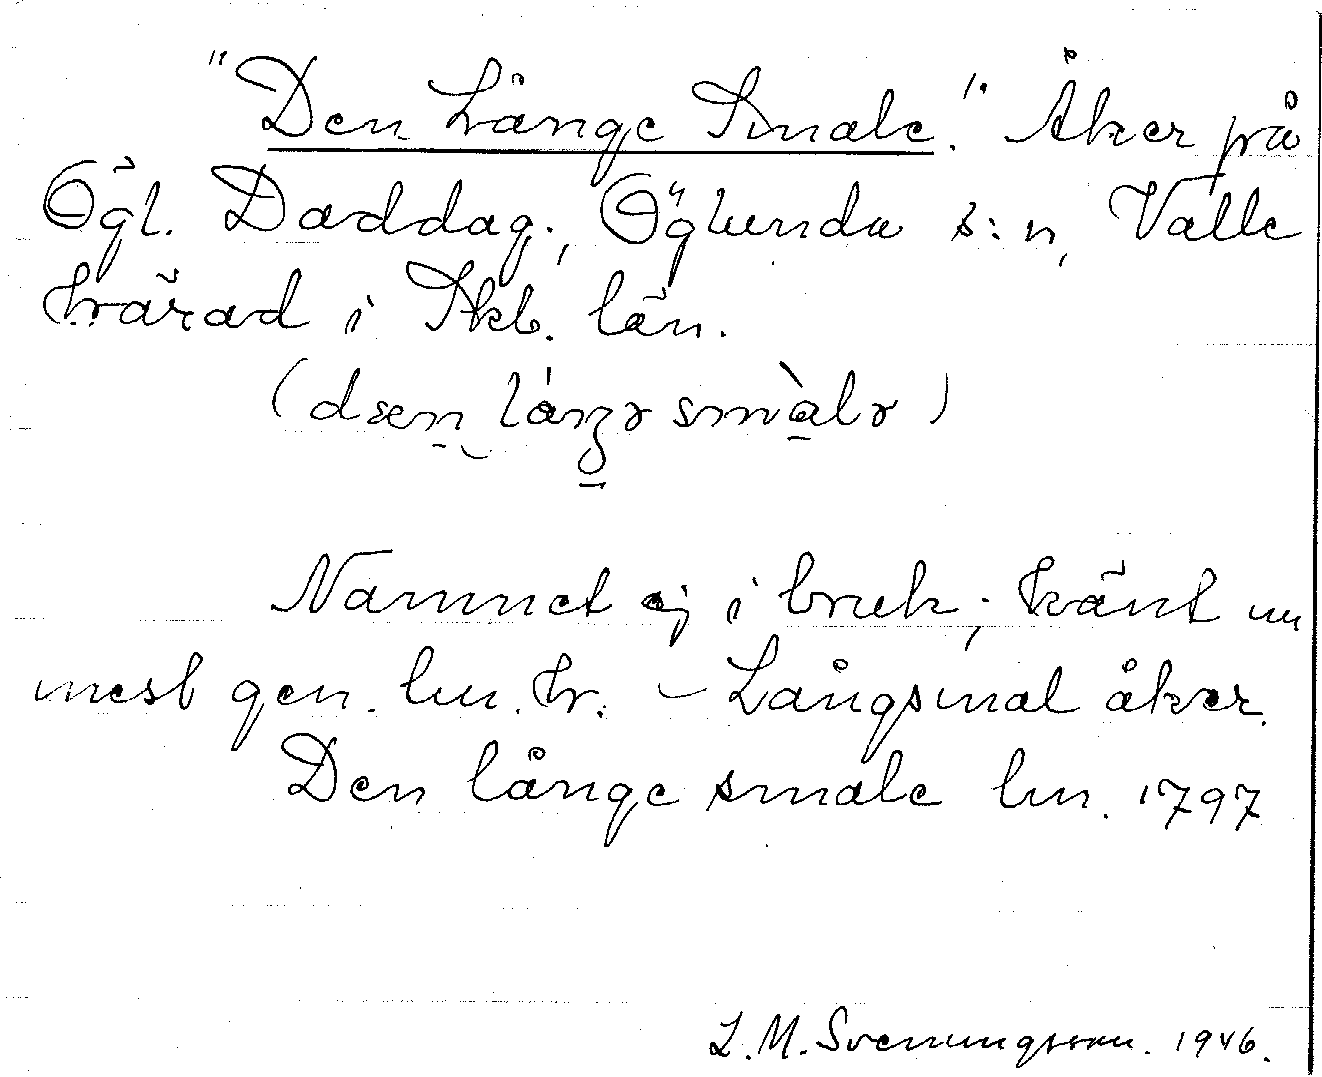 "Den Långe Smale." Åker på
Ögl. Daddag., Öglunda s:n, Valle
härad i Skb. län.
Namnet ej i bruk; känt nu
mest gen. lm. hr. – Långsmal åker.
Den långe smale lm. 1797
L. M. Svenungsson. 1946.